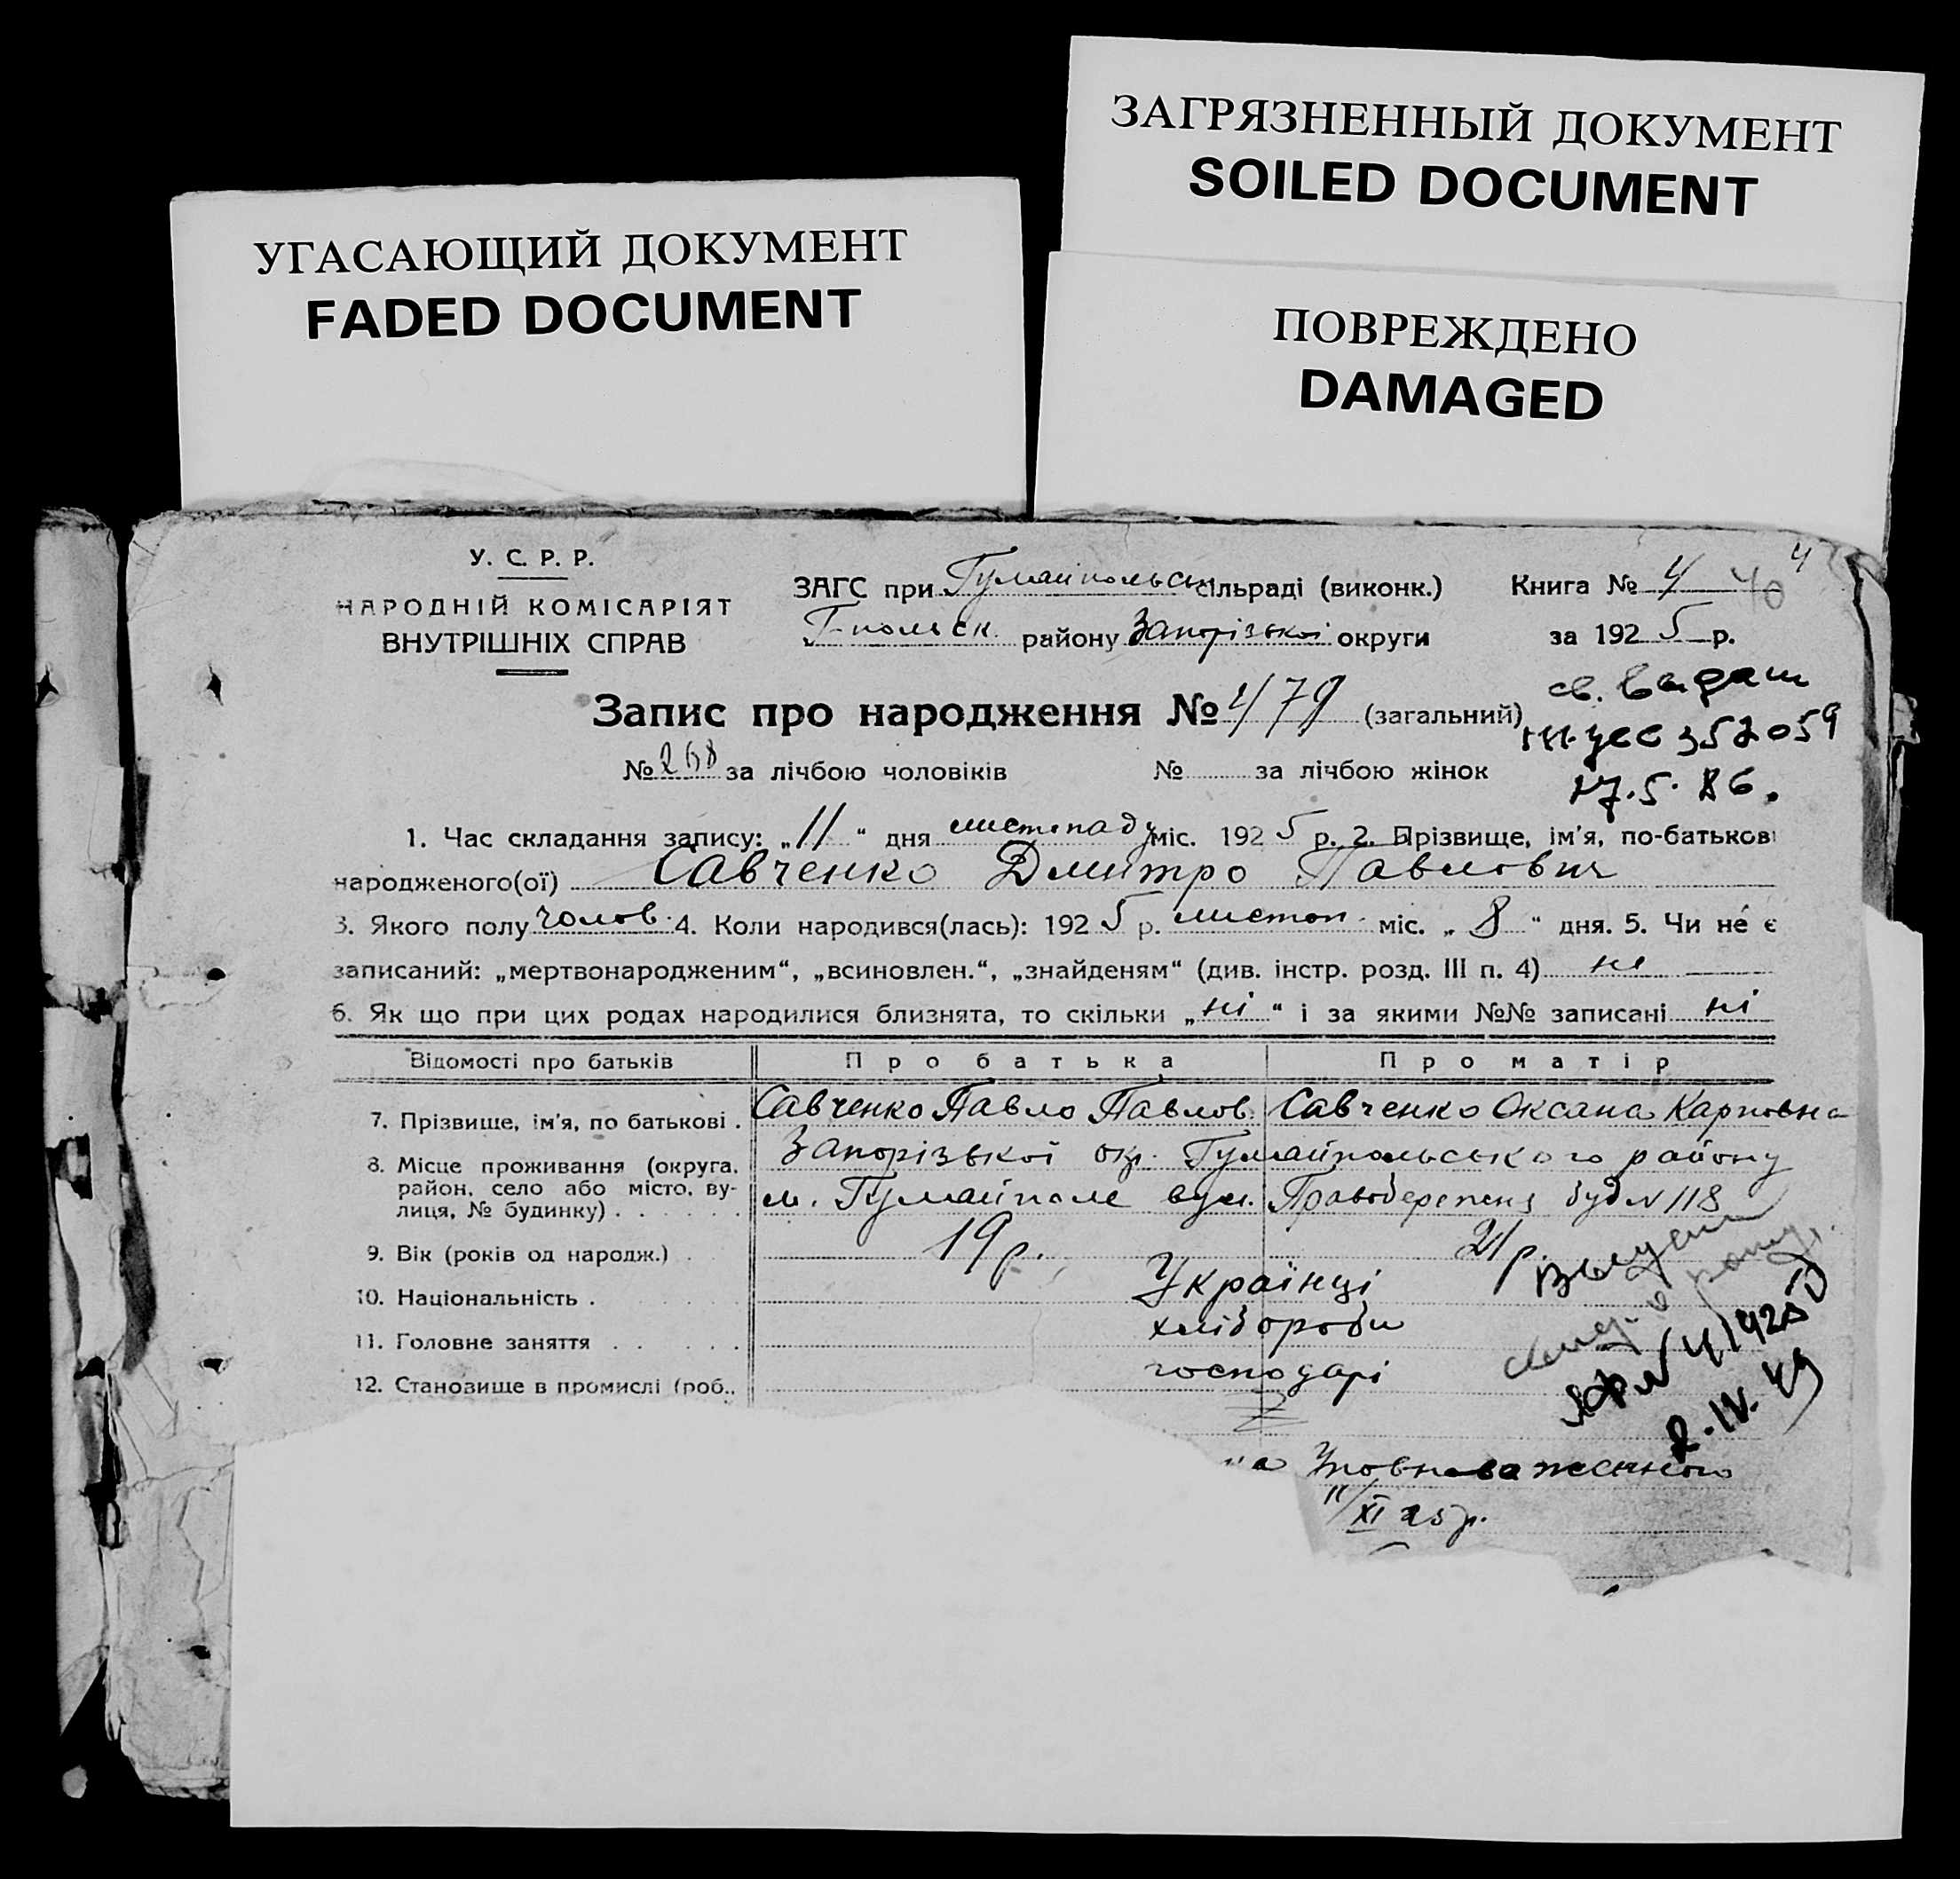 ЗАГРЯЗНЕННЫЙ ДОКУМЕНТ
SOILED DOCUMENT
УГАСАЮЩИЙ ДОКУМЕНТ
FADED DOCUMENT
ПОВРЕЖДЕНО
DAMAGED
4
У. С. Р. Р.
НАРОДНІЙ КОМІСАРІЯТ
ВНУТРІШНІХ СПРАВ
ЗАГС при Гуляйпольськ сільраді (виконк.) Книга № 4 40
Г-польск. району Запорізької округи за 192 5 р.
Запис про народження № 479 (загальний)
св. выдан
352059
17.5.86.
№ 268 за лічбою чоловіків № за лічбою жінок
1. Час складання запису: „ 11 “ дня листопаду міс. 192 5 р. 2. Прізвище, ім'я, по-батькові
народженого(ої) Савченко Дмитро Павлович
3. Якого полу чолов. 4. Коли народився(лась): 192 5 р. листоп. міс. „ 8 “ дня. 5. Чи не є
записаний: „мертвонародженим“, „всиновлен.“, „знайденям“ (див. інстр. розд. III п. 4) ні
6. Як що при цих родах народилися близнята, то скільки „ ні “ і за якими №№ записані ні
Відомості про батьків Про батька Про матір
7. Прізвище, ім'я, по батькові . Савченко Павло Павлов. Савченко Оксана Карповна
8. Місце проживання (округа, Запорізької окр. Гуляйпольського району
район, село або місто, ву-
лиця, № будинку) . . . . . . м. Гуляйполе вул. Правобережна буд № 118
9. Вік (років од народж.) . 19 р. 21 р.
10. Національність . Українці
11. Головне заняття . . . . . хлібороби
12. Становище в промислі (роб., господарі
2.IV.49
на Уповноваженого
11/XI 25 р.